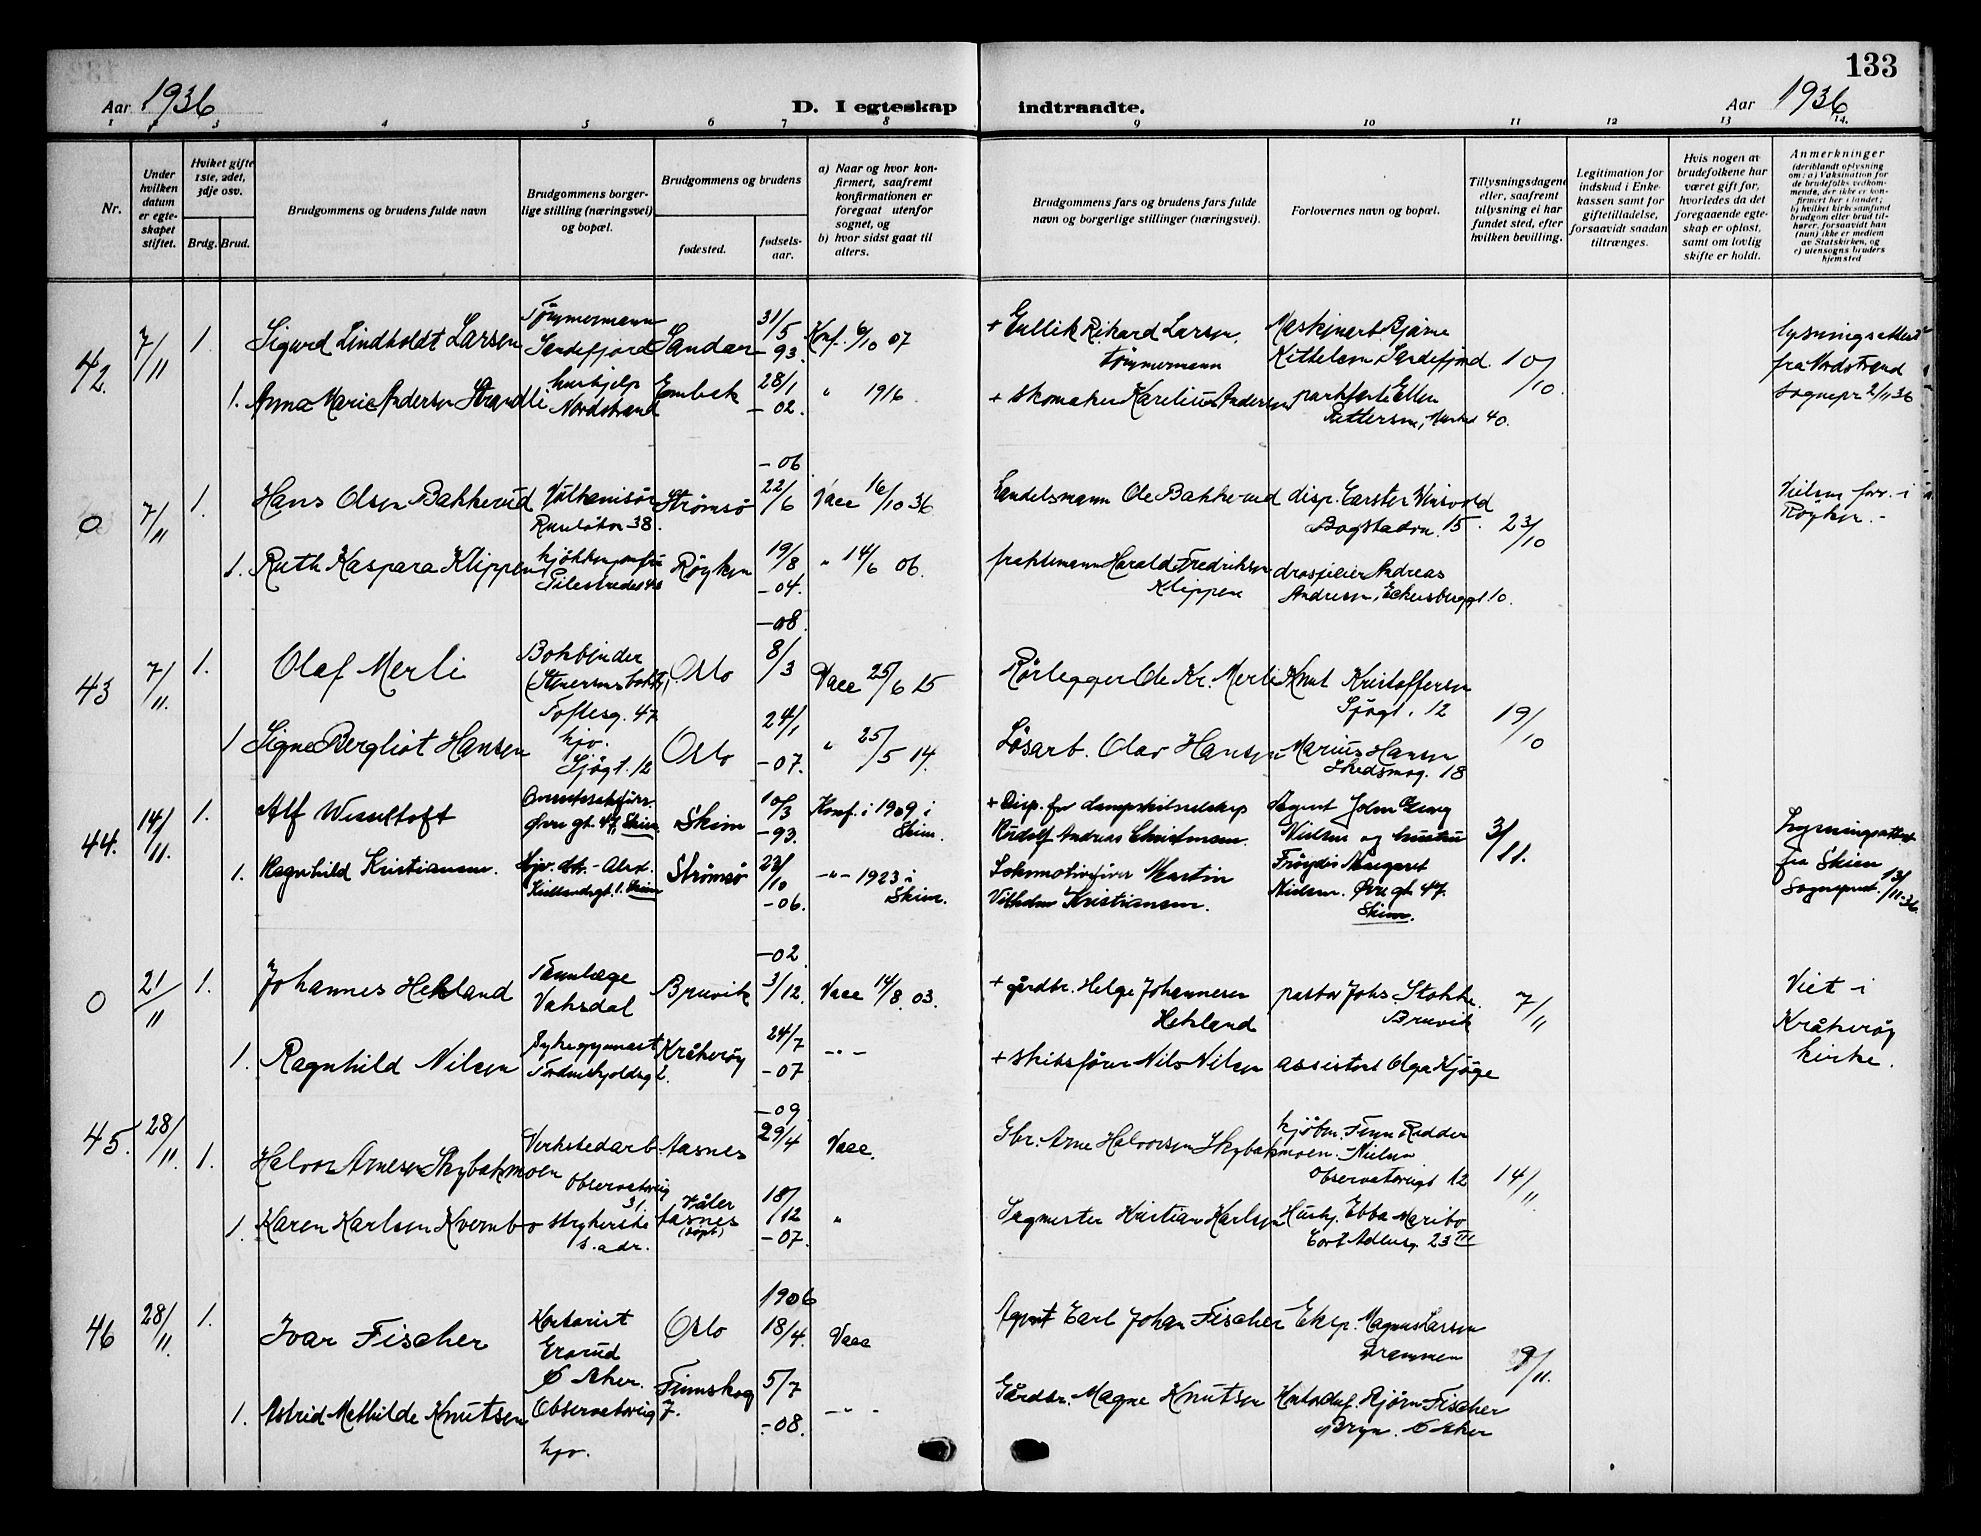 133
Aar 1936
D. I egteskap indtraadte.
Aar 1936
1 2 3 4 5 6 7 8 9 10 11 12 13 14.
Nr.
Under hvilken datum er egteskapet stiftet.
Hviket gifte 1ste, 2det, 3dje osv.
Brdg. Brud.
Brudgommens og brudens fulde navn
Brudgommens borgerlige stilling (næringsvei) og bopæl.
Brudgommens og brudens
fødested.
fødselsaar.
a) Naar og hvor konfirmert, saafremt konfirmationen er foregaat utenfor sognet, og
b) hvor sidst gaat til alters.
Brudgommens fars og brudens fars fulde navn og borgerlige stillinger (næringsvei).
Forlovernes navn og bopæl.
Tillysningsdagene eller, saafremt tillysning ei har fundet sted, efter hvilken bevilling.
Legitimation for indskud i Enkekassen samt for giftetilladelse, forsaavidt saadan tiltrænges.
Hvis nogen av brudefolkene har været gift før, hvorledes da det foregaaende egteskap er opløst, samt om lovlig skifte er holdt.
Anmerkninger
(deriblandt oplysning om: a) Vaksination for de brudefolks vedkommende, der ikke er konfirmert her i landet; b) hvilket kirkesamfund brudgom eller brud tilhører, forsaavidt han (hun) ikke er medlem av Statskirken, og c) utensogns bruders hjemsted
42. 7/11 1. Sigurd Lindholdt Larsen Tømmermann Sandefjord Sandar 31/5 - 93. Konf. 6/10 07 + Gullik Rikard Larsen, tømmermann Maskinarb. Bjarne Kittelsen Sandefjord. 10/10. lysningsattest fra Nordstrand sognepr 2/11 36
1. Anna Marie Andersen Strandli hushjelp Nordstrand Enebak 28/1 - 02. " 1916. + skomaker Karelius Andersen Ellen Pettersen, 40.
0 7/11 1. Hans Olsen Bakkerud 38. Strømsø - 06 22/6 Vace 16/10 36. Handelsmann Ole Bakkerud disp. Carster Winsvold Bogstadvn. 15. 23/10 Vielsen forr. i Røyken.
1. Ruth Kaspara Klippen Pilestredet Røyken 19/8 - 04. " 14/6 06. fraktemann Harald Fredriksen Klippen drosjeeier Andreas Andresen, Eckersbergsgt 10.
43 7/11. 1. Olaf Merli Bokbinder Toftesg. 47 Oslo - 08. 8/3 Vace 25/6 15 Rørlegger Ole Kr. Merli Knut Kristoffersen Sjøgt. 12 19/10
1 Signe Bergliot Hansen hjv. Sjøgt. 12 Oslo 24/1 - 07. " 25/5 14. Løsarb. Olav Hansen Marius Hansen Skedsmog. 18
44. 14/11. 1. Alf Wesseltoft Øvre gt. 47, Skien Skien 10/3 - 93. Konf. i 1909 i Skien. + Disp. for dampskibsselskap Rudolf Andreas Agent John Georg Nielsen og hustru 3/11. Lysningsattest fra Skien Sogneprest. 13/11-36.
1. Ragnhild Kristiansen. Skien Strømsø 23/10 - 06. - " - 1923 i Skien. Lokomotivfører Martin Vilhelm Kristiansen. Frøydis Margaret Nielsen. Øvre gt. 47. Skien.
0 21/11 1. Johannes Hekland Tannlæge Vaksdal Bruvik - 02 3/12. Vace 14/8. 03. + gårdbr. Helge Johannesen Hekland pastor Johs Stokke. Bruvik 7/11 Viet i Kråkerøy kirke.
1. Ragnhild Nilsen Sykegymnast Tordenskjoldsg 2. Kråkerøy 24/7 - 07 - " - + skibsfører Nils Nilsen assistent Olga Kjøge
45. 28/11. 1. Halvor Arnesen Skybakmoen Verkstedarb. Observatoriig 31. Aasnes - 09 29/4 Vace. Gbr. Arne Halvorsen Skybakmoen. kjøbm. Finn Rødder Nielsen Observatoriegt 12 14/11.
1. Karen Karlsen Kvernbo strykerske s. adr. Våler Aasnes (døpt) 18/12 - 07. " Sagmester Kristian Karlsen Hushj. Ebba Maribo Cort Adlersg. 23 III
46 28/11. 1. Ivar Fischer Kontorist Ø Aker. Oslo 1906 18/4. Vace Agent Carl Johan Fischer Eksp. Magnus Larsen Drammen 9/11.
1. Astrid Mathilde Knutsen Observatoriig 7. hjv. Finnskog 5/7 - 08. - " - Gårdbr. Magne Knutsen Bjørn Fischer Bryn. Ø Aker